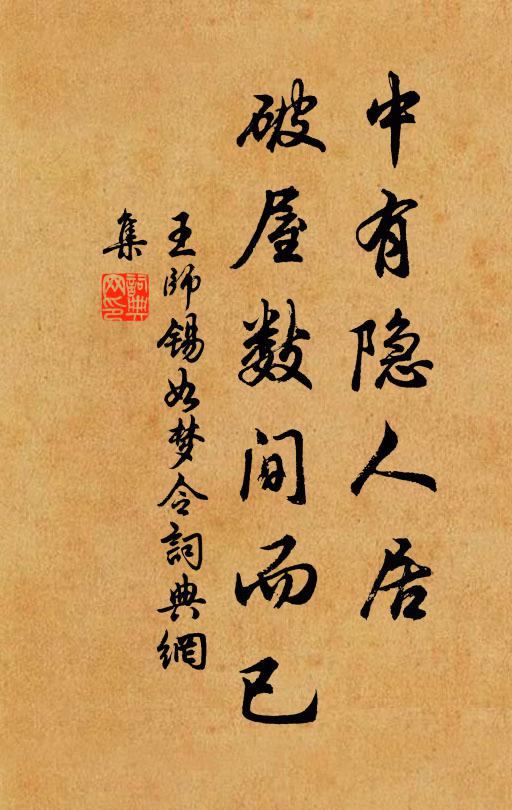 中有隐人居
破屋数间而已
王師锡如梦令詞典網
集
詞典
网印